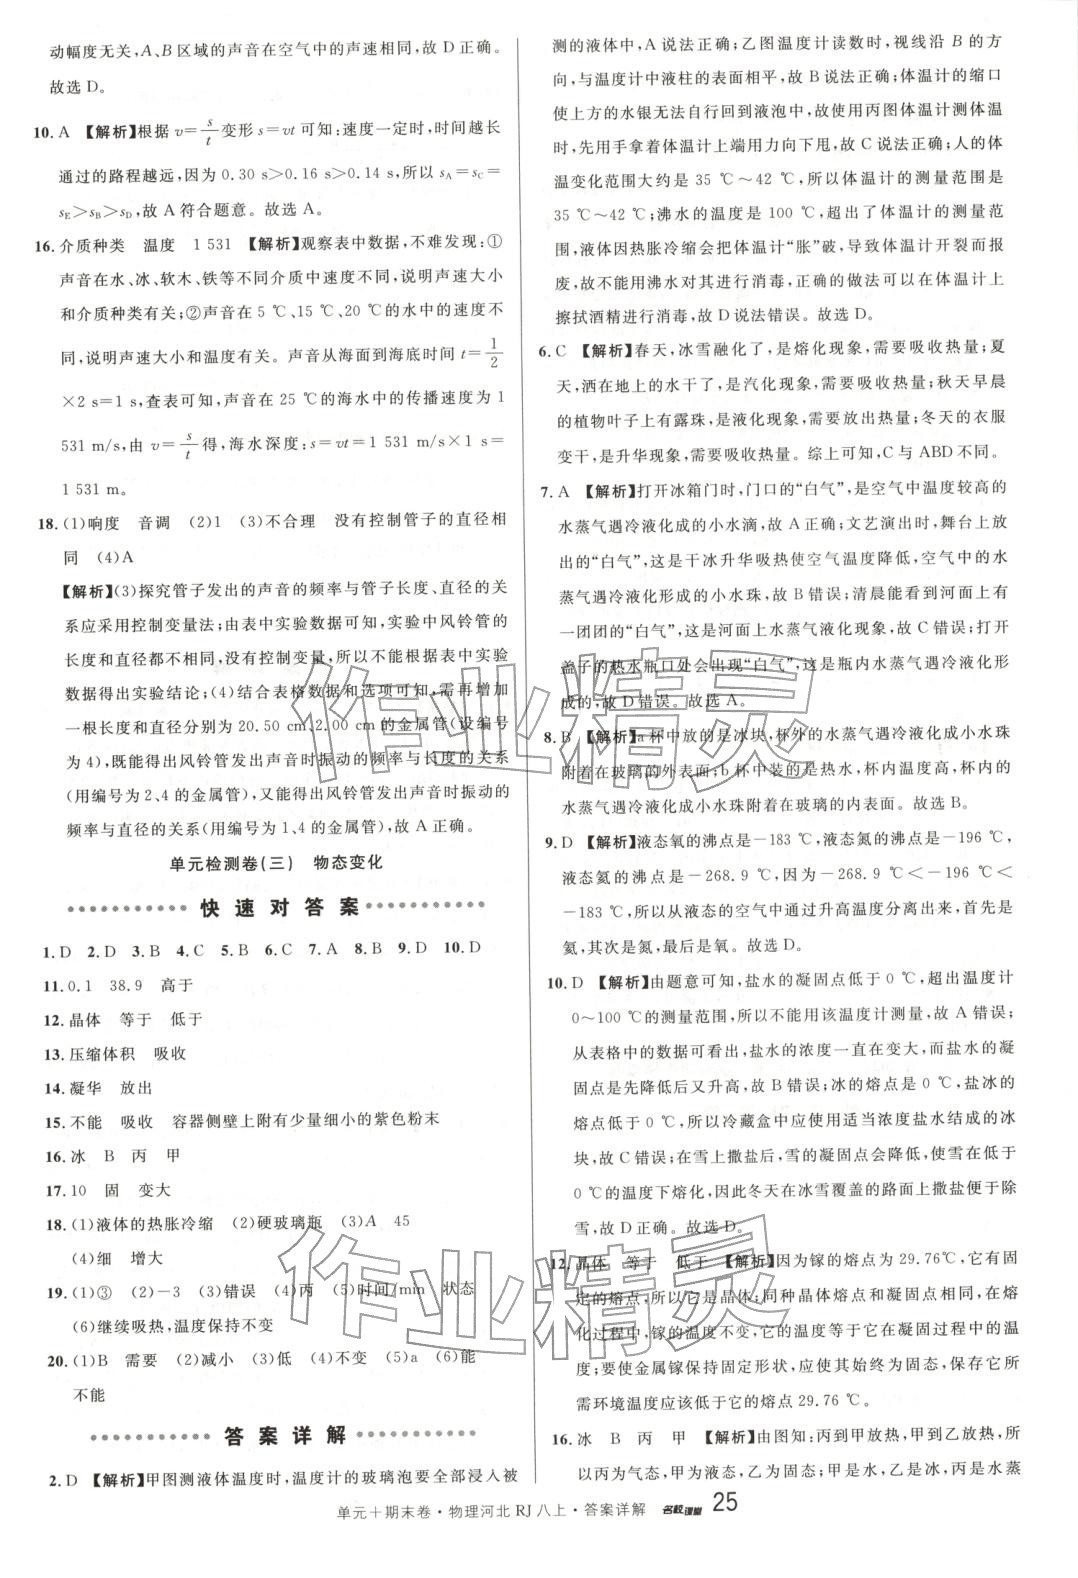 动幅度无关，A、B区域的声音在空气中的声速相同，故D正确。
故选D。
10. A 【解析】根据 v=s/t 变形 s=vt 可知：速度一定时，时间越长
通过的路程越远，因为 0.30 s＞0.16 s＞0.14 s，所以 sA=sC=
sE＞sB＞sD，故A符合题意。故选A。
16. 介质种类 温度 1 531 【解析】观察表中数据，不难发现：①
声音在水、冰、软木、铁等不同介质中速度不同，说明声速大小
和介质种类有关；②声音在 5 ℃、15 ℃、20 ℃的水中的速度不
同，说明声速大小和温度有关。声音从海面到海底时间 t=1/2
×2 s=1 s，查表可知，声音在 25 ℃的海水中的传播速度为 1
531 m/s，由 v=s/t 得，海水深度：s=vt=1 531 m/s×1 s=
1 531 m。
18. (1)响度 音调 (2)1 (3)不合理 没有控制管子的直径相
同 (4)A
【解析】(3)探究管子发出的声音的频率与管子长度、直径的关
系应采用控制变量法；由表中实验数据可知，实验中风铃管的
长度和直径都不相同，没有控制变量，所以不能根据表中实验
数据得出实验结论；(4)结合表格数据和选项可知，需再增加
一根长度和直径分别为 20.50 cm、2.00 cm的金属管(设编号
为4)，既能得出风铃管发出声音时振动的频率与长度的关系
(用编号为2、4的金属管)，又能得出风铃管发出声音时振动的
频率与直径的关系(用编号为1、4的金属管)，故A正确。
单元检测卷(三) 物态变化
快速对答案
1. D 2. D 3. B 4. C 5. B 6. C 7. A 8. B 9. D 10. D
11. 0.1 38.9 高于
12. 晶体 等于 低于
13. 压缩体积 吸收
14. 凝华 放出
15. 不能 吸收 容器侧壁上附有少量细小的紫色粉末
16. 冰 B 丙 甲
17. 10 固 变大
18. (1)液体的热胀冷缩 (2)硬玻璃瓶 (3)A 45
(4)细 增大
19. (1)③ (2)－3 (3)错误 (4)丙 (5)时间/min 状态
(6)继续吸热，温度保持不变
20. (1)B 需要 (2)减小 (3)低 (4)不变 (5)a (6)能
不能
答案详解
2. D 【解析】甲图测液体温度时，温度计的玻璃泡要全部浸入被
测的液体中，A说法正确；乙图温度计读数时，视线沿 B 的方
向，与温度计中液柱的表面相平，故B说法正确；体温计的缩口
使上方的水银无法自行回到液泡中，故使用丙图体温计测体温
时，先用手拿着体温计上端用力向下甩，故C说法正确；人的体
温变化范围大约是 35 ℃～42 ℃，所以体温计的测量范围是
35 ℃～42 ℃；沸水的温度是 100 ℃，超出了体温计的测量范
围，液体因热胀冷缩会把体温计“胀”破，导致体温计开裂而报
废，故不能用沸水对其进行消毒，正确的做法可以在体温计上
擦拭酒精进行消毒，故D说法错误。故选D。
6. C 【解析】春天，冰雪融化了，是熔化现象，需要吸收热量；夏
天，洒在地上的水干了，是汽化现象，需要吸收热量；秋天早晨
的植物叶子上有露珠，是液化现象，需要放出热量；冬天的衣服
变干，是升华现象，需要吸收热量。综上可知，C与ABD不同。
7. A 【解析】打开冰箱门时，门口的“白气”，是空气中温度较高的
水蒸气遇冷液化成的小水滴，故A正确；文艺演出时，舞台上放
出的“白气”，这是干冰升华吸热使空气温度降低，空气中的水
蒸气遇冷液化形成的小水珠，故B错误；清晨能看到河面上有
一团团的“白气”，这是河面上水蒸气液化现象，故C错误；打开
盖子的热水瓶口处会出现“白气”，这是瓶内水蒸气遇冷液化形
成的，故D错误。故选A。
8. B 【解析】a杯中放的是冰块，杯外的水蒸气遇冷液化成小水珠
附着在玻璃的外表面；b杯中装的是热水，杯内温度高，杯内的
水蒸气遇冷液化成小水珠附着在玻璃的内表面。故选B。
9. D 【解析】液态氧的沸点是－183 ℃，液态氮的沸点是－196 ℃，
液态氦的沸点是－268.9 ℃，因为－268.9 ℃＜－196 ℃＜
－183 ℃，所以从液态的空气中通过升高温度分离出来，首先是
氦，其次是氮，最后是氧。故选D。
10. D 【解析】由题意可知，盐水的凝固点低于 0 ℃，超出温度计
0～100 ℃的测量范围，所以不能用该温度计测量，故A错误；
从表格中的数据可看出，盐水的浓度一直在变大，而盐水的凝
固点是先降低后又升高，故B错误；冰的熔点是 0 ℃，盐冰的
熔点低于 0 ℃，所以冷藏盒中应使用适当浓度盐水结成的冰
块，故C错误；在雪上撒盐后，雪的凝固点会降低，使雪在低于
0 ℃的温度下熔化，因此冬天在冰雪覆盖的路面上撒盐便于除
雪，故D正确。故选D。
12. 晶体 等于 低于 【解析】因为镓的熔点为29.76℃，它有固
定的熔点，所以它是晶体；同种晶体熔点和凝固点相同，在熔
化过程中，镓的温度不变，它的温度等于它在凝固过程中的温
度；要使金属镓保持固定形状，应使其始终为固态，保存它所
需环境温度应该低于它的熔点 29.76 ℃。
16. 冰 B 丙 甲 【解析】由图知：丙到甲放热，甲到乙放热，所
以丙为气态，甲为液态，乙为固态；甲是水，乙是冰，丙是水蒸
单元＋期末卷·物理河北RJ八上·答案详解 名校课堂 25
作业精灵
作业精灵